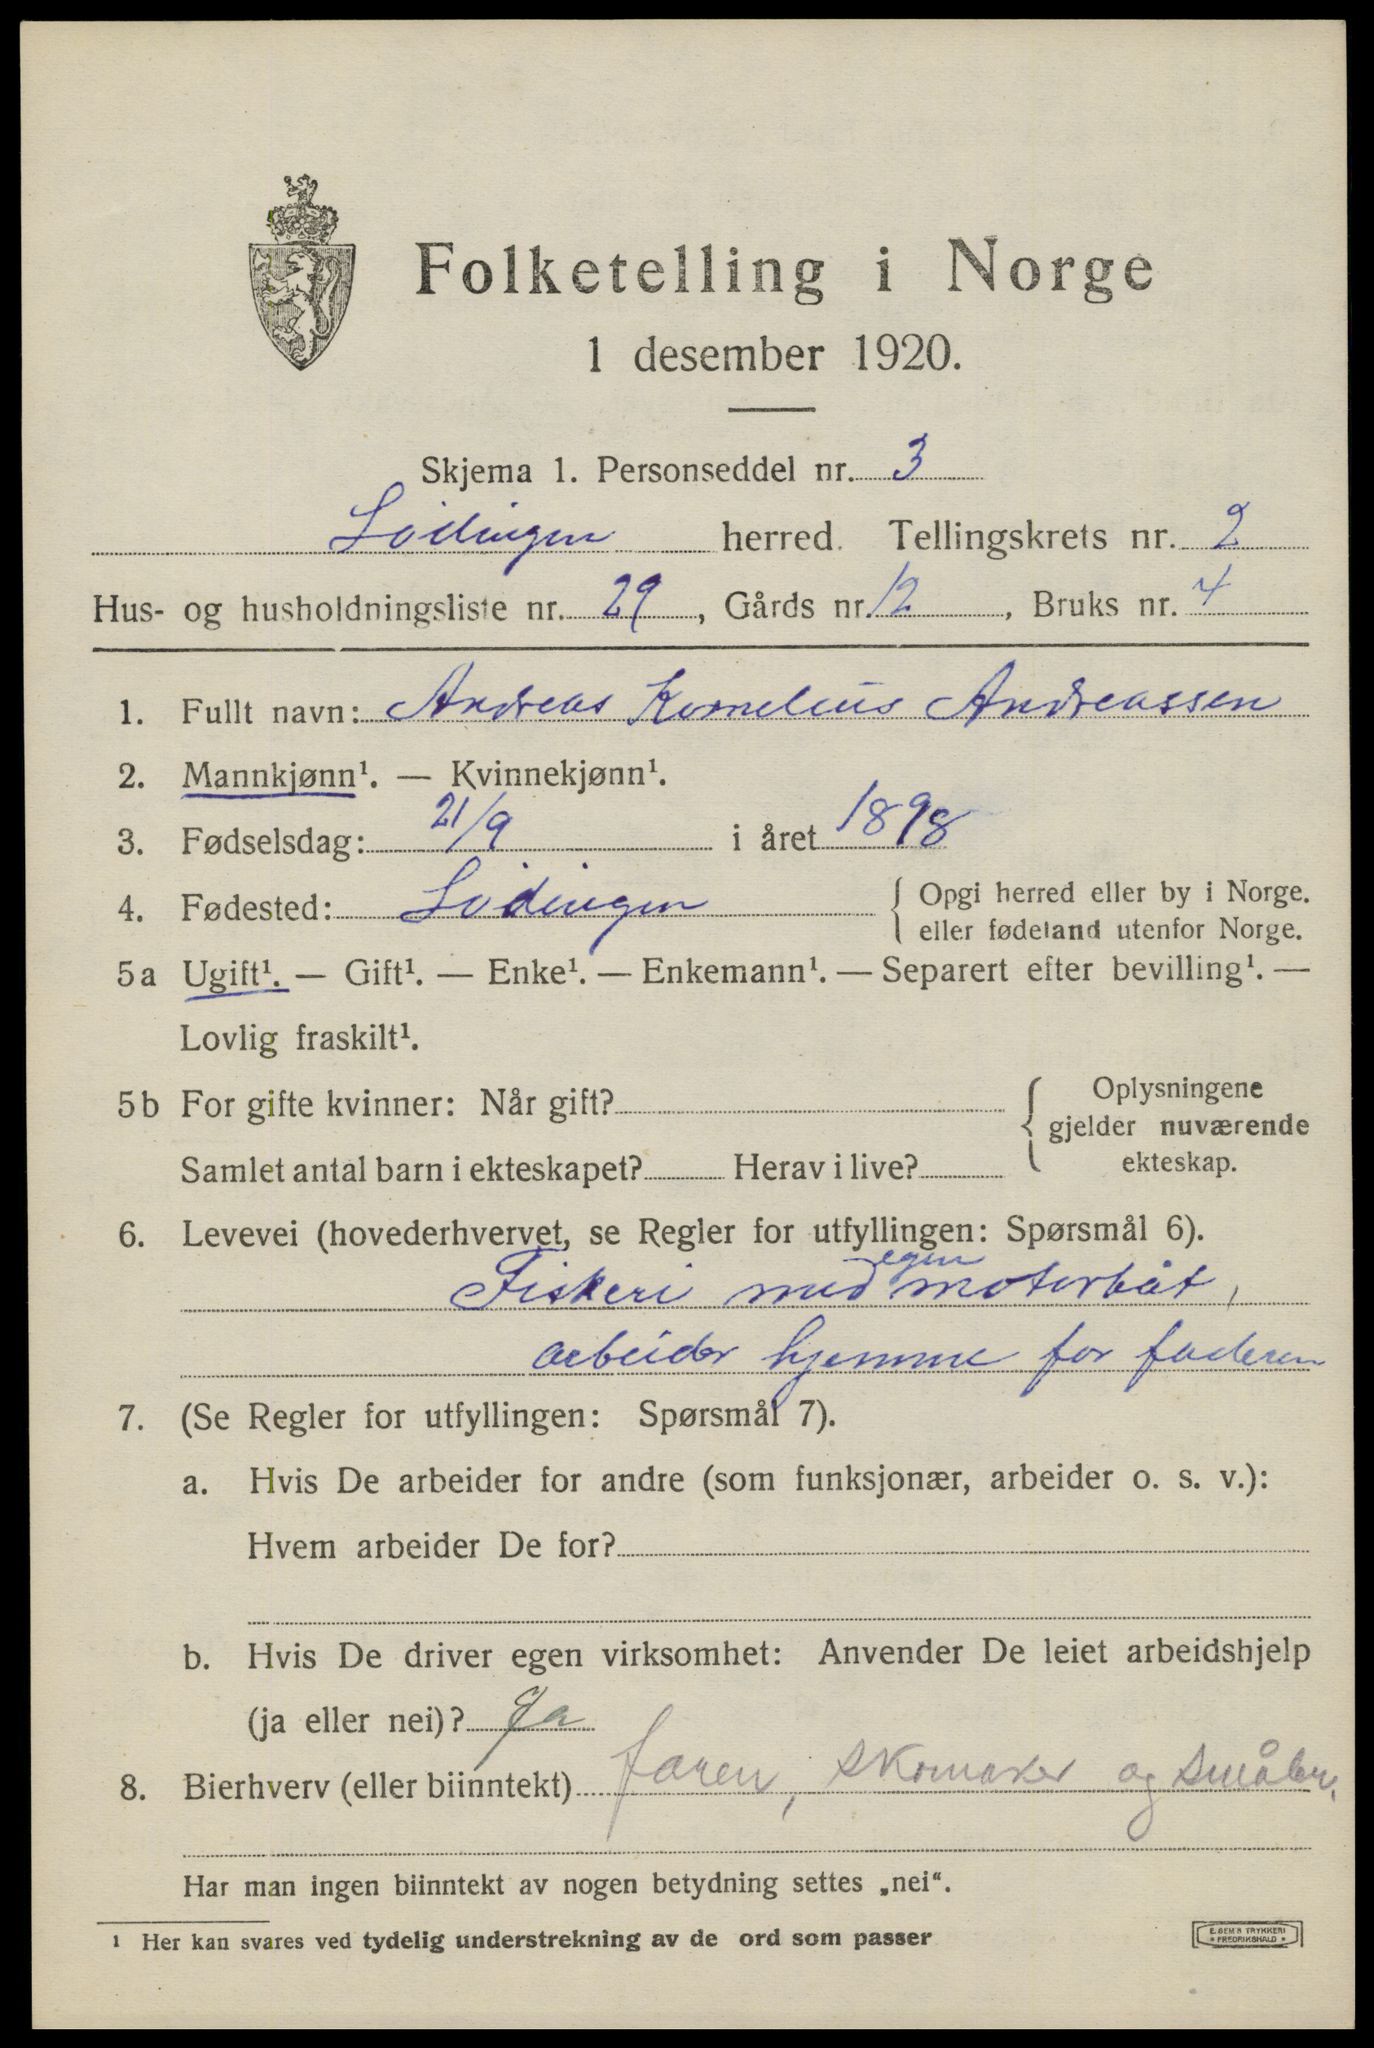 Folketelling i Norge
1 desember 1920.
Skjema 1. Personseddel nr. 3
Lödingen herred. Tellingskrets nr. 2
Hus- og husholdningsliste nr. 29, Gårds nr. 12, Bruks nr. 4
1. Fullt navn: Andreas Kornelius Andreassen
2. Mannkjønn¹. — Kvinnekjønn¹.
3. Fødselsdag: 21/9 i året 1898
4. Fødested: Lödingen { Opgi herred eller by i Norge.
eller fødeland utenfor Norge.
5a Ugift¹. — Gift¹. — Enke¹. — Enkemann¹. — Separert efter bevilling¹. —
Lovlig fraskilt¹.
5b For gifte kvinner: Når gift? { Oplysningene
gjelder nuværende
Samlet antal barn i ekteskapet? Herav i live? ekteskap.
6. Levevei (hovederhvervet, se Regler for utfyllingen: Spørsmål 6).
Fiskeri med egen motorbåt,
arbeider hjemme for faderen
7. (Se Regler for utfyllingen: Spørsmål 7).
a. Hvis De arbeider for andre (som funksjonær, arbeider o. s. v.):
Hvem arbeider De for?
b. Hvis De driver egen virksomhet: Anvender De leiet arbeidshjelp
(ja eller nei)? Ja
8. Bierhverv (eller biinntekt) faren, skomaker og småbr.
Har man ingen biinntekt av nogen betydning settes „nei“.
¹ Her kan svares ved tydelig understrekning av de ord som passer
E. SEM'S TRYKKERI
* FREDRIKSHALD *